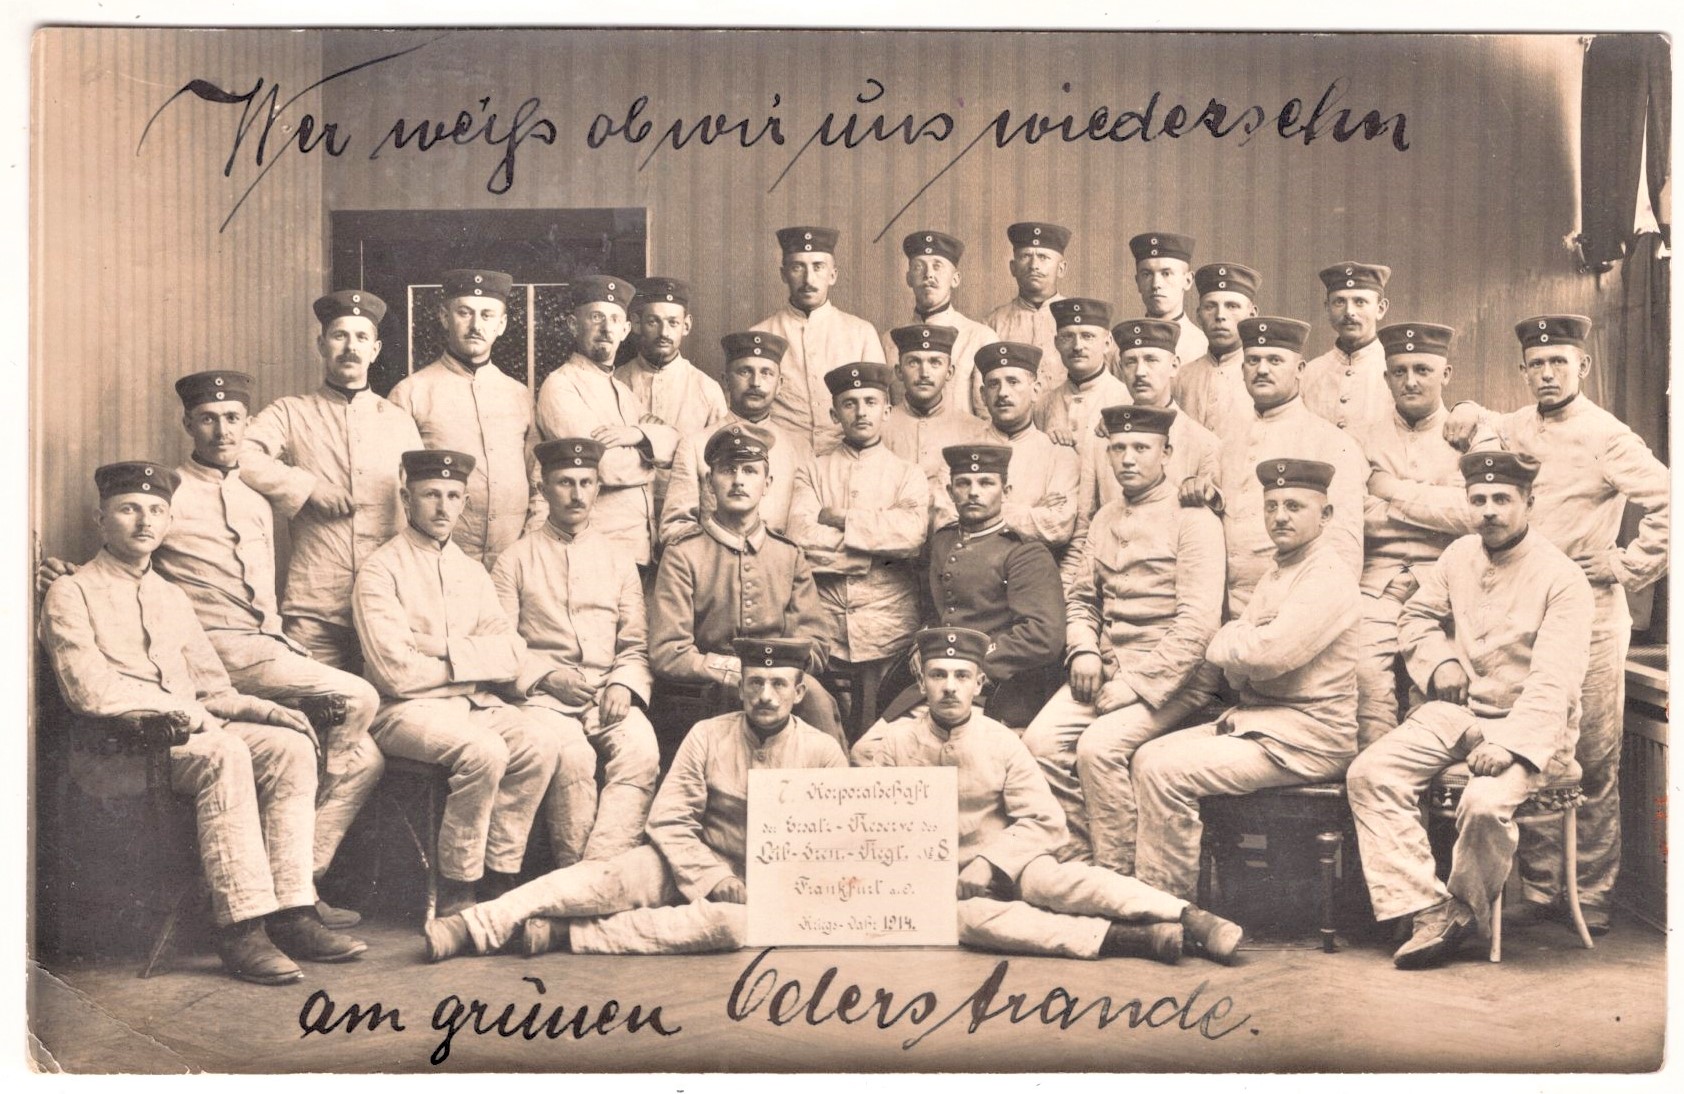 Wer weiß ob wir uns wiedersehn
7. Korporalschaft
der Ersatz-Reserve des
Leib-Gren.-Regt. № 8
Frankfurt a.O.
Kriegs-Jahr 1914.
am grünen Oderstrande.